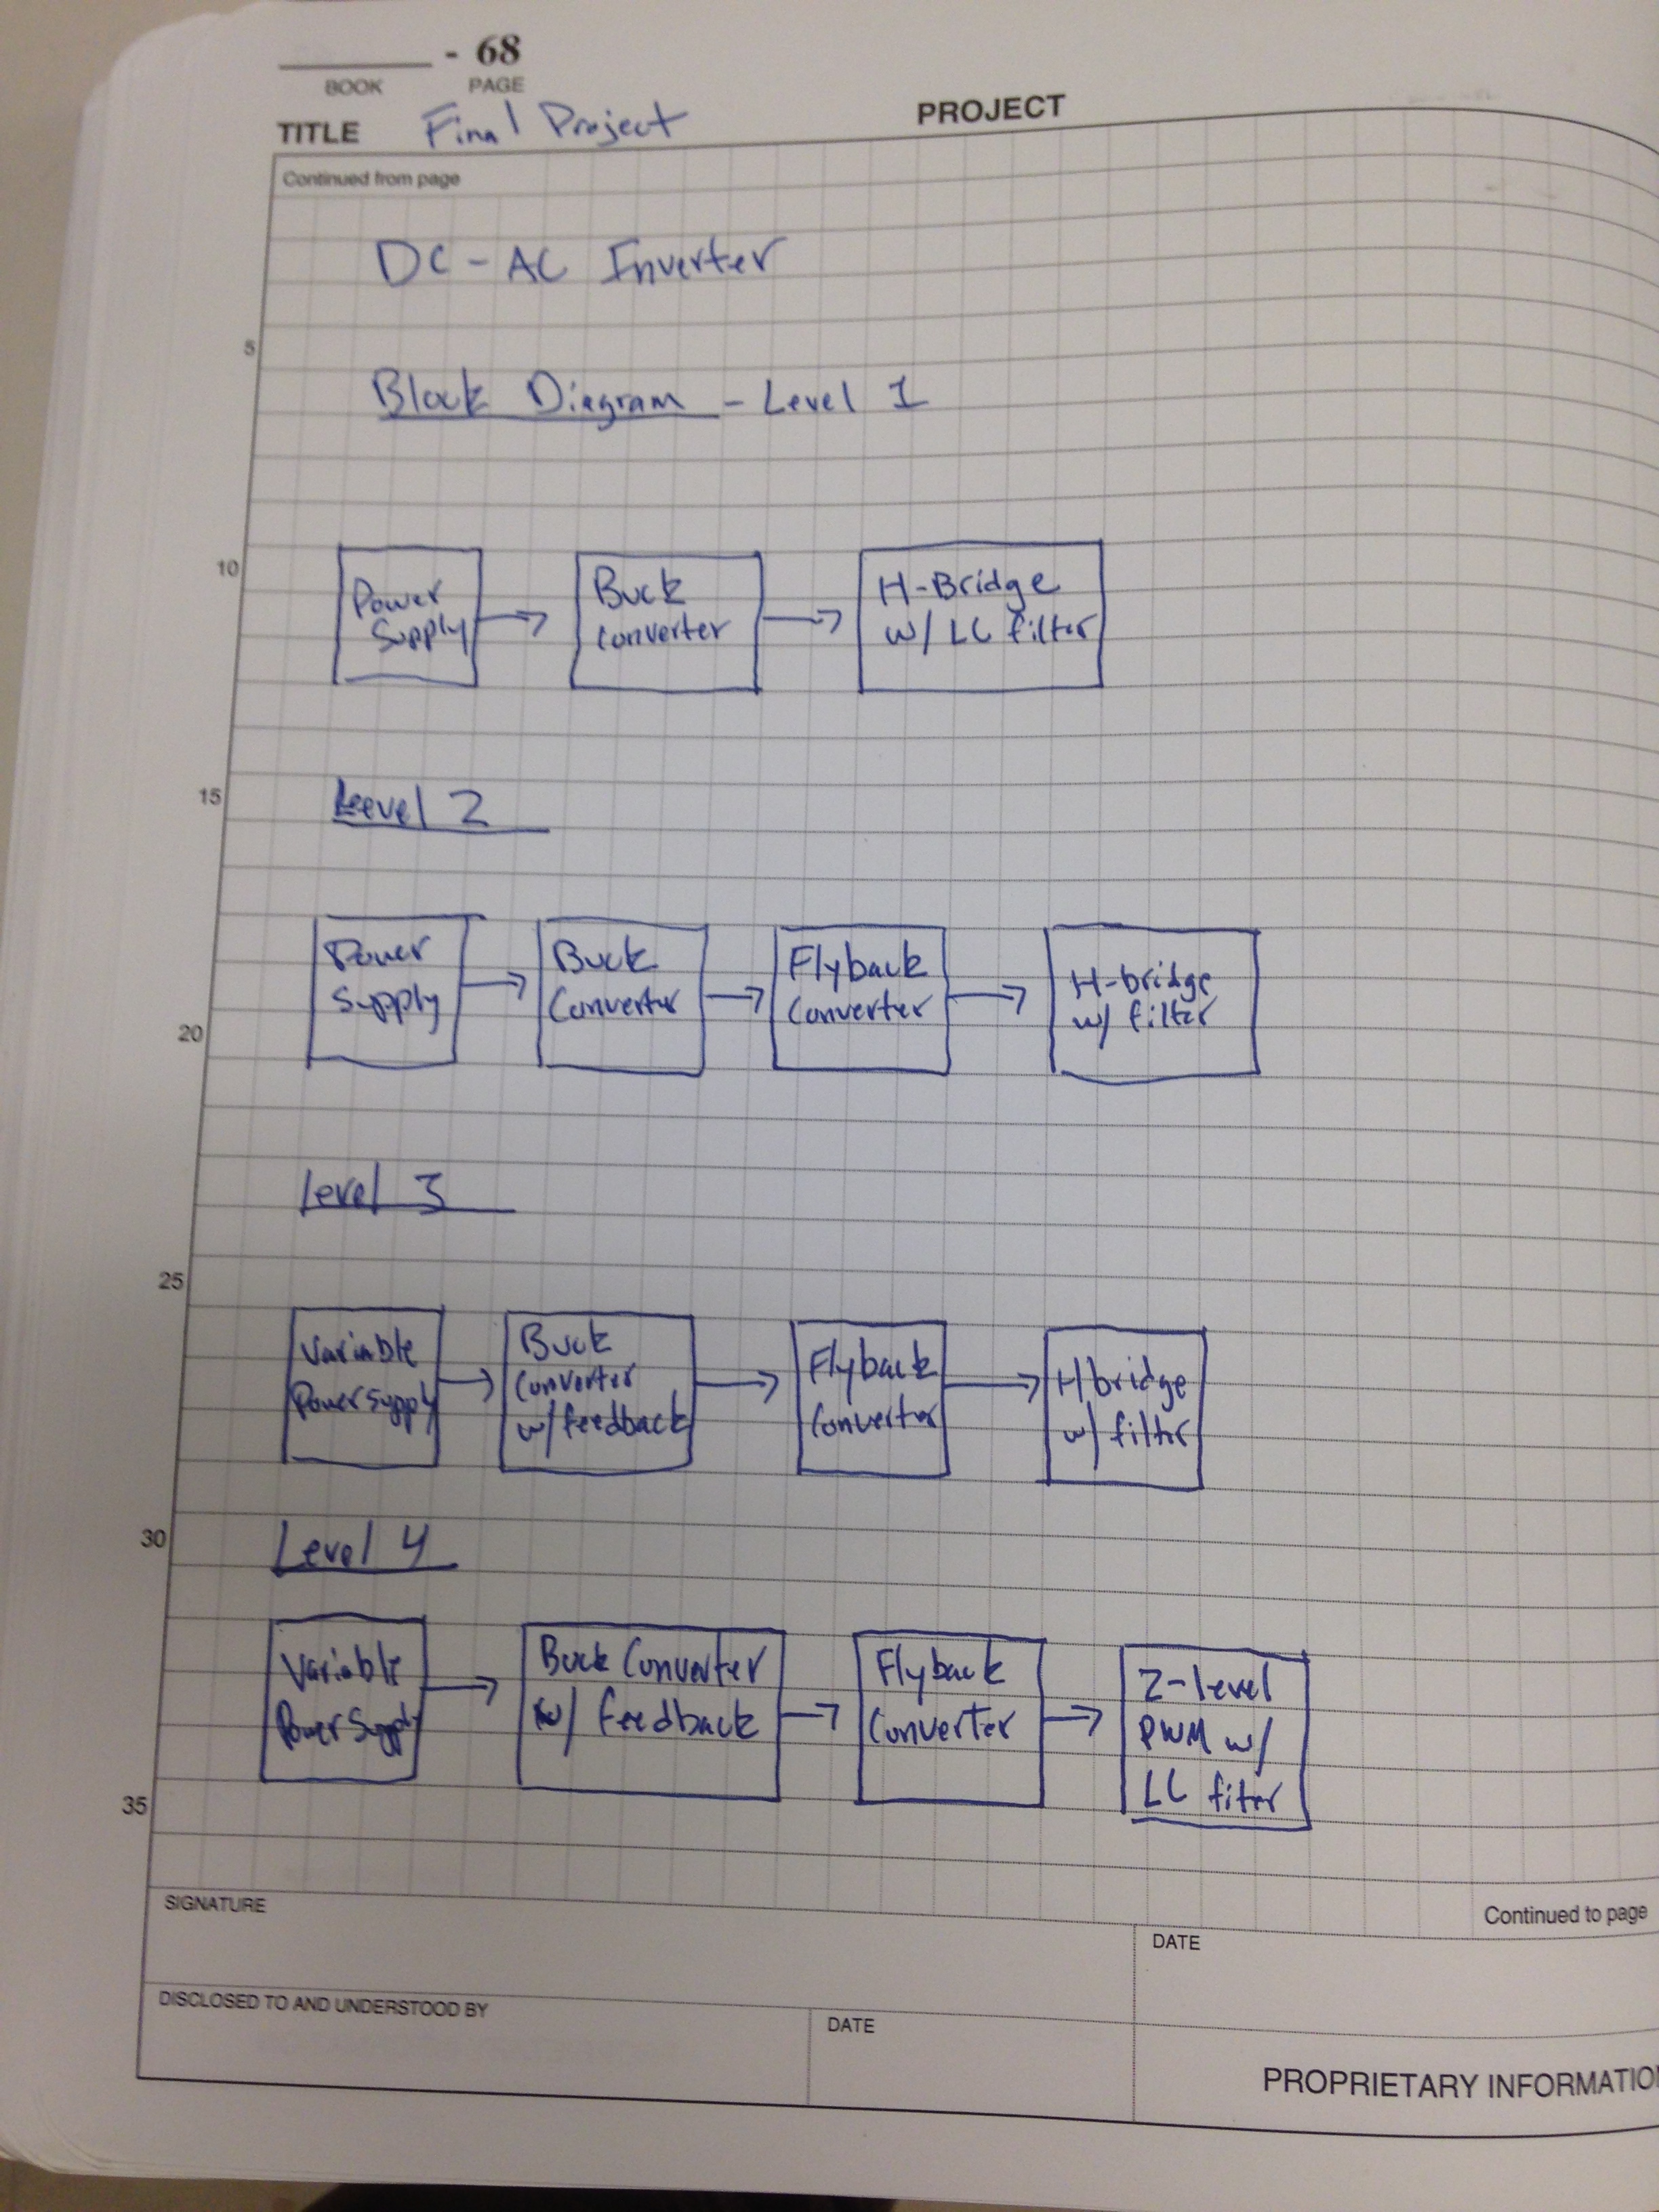 - 68
BOOK PAGE
TITLE Final Project PROJECT
Continued from page
DC - AC Inverter
5
Block Diagram - Level 1
10
Power
Supply
Buck
Converter
H-Bridge
w/ LC filter
15
Level 2
Power
Supply
Buck
Converter
Flyback
Converter
H-bridge
w/ filter
20
Level 3
25
Variable
Power Supply
Buck
Converter
w/ feedback
Flyback
Converter
H bridge
w/ filter
30
Level 4
Variable
Power Supply
Buck Converter
w/ feedback
Flyback
Converter
2-level
PWM w/
LC filter
35
SIGNATURE
Continued to page
DATE
DISCLOSED TO AND UNDERSTOOD BY
DATE
PROPRIETARY INFORMATIO